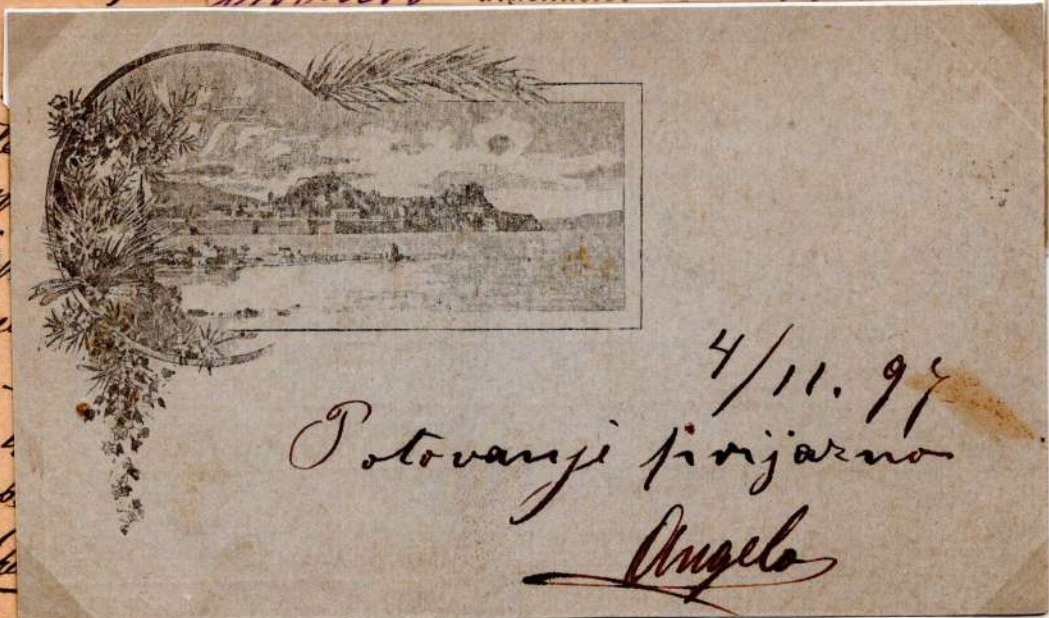 4/11. 97
Potovanje prijazno
Angela